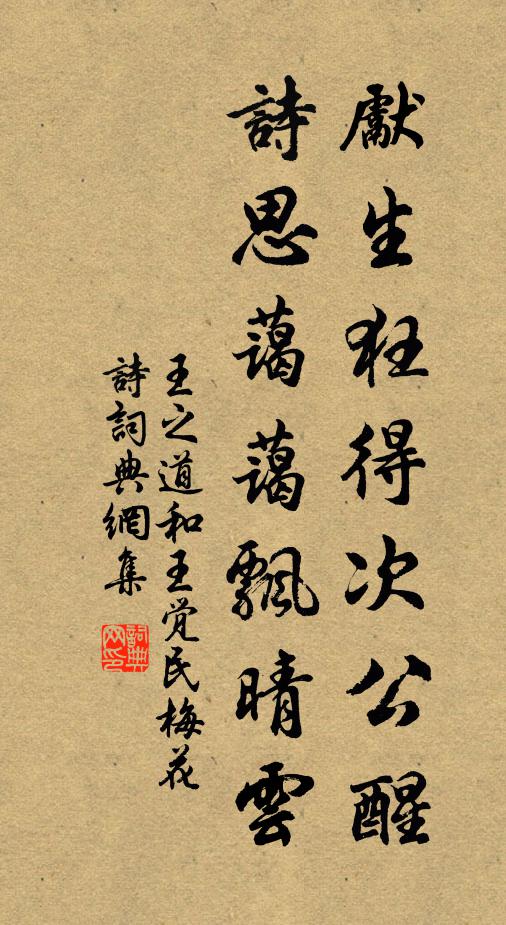 獻生狂得次公醒
詩思藹藹飄晴雲
王之道和王覚民梅花
詩詞典網集
詞典网印